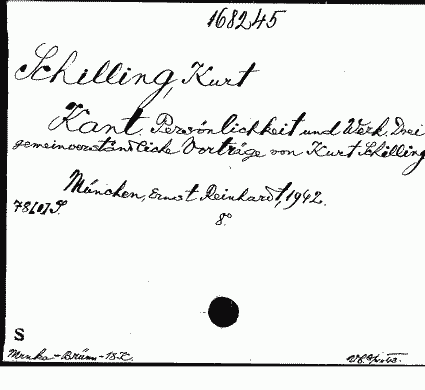 168245
Schilling, Kurt
Kant, Persönlichkeit und Werk. Drei
gemeinverständliche Vorträge von Kurt Schilling
München, Ernst Reinhardt, 1942.
78[0] S.
8°
S
Mrnka-Brünn-